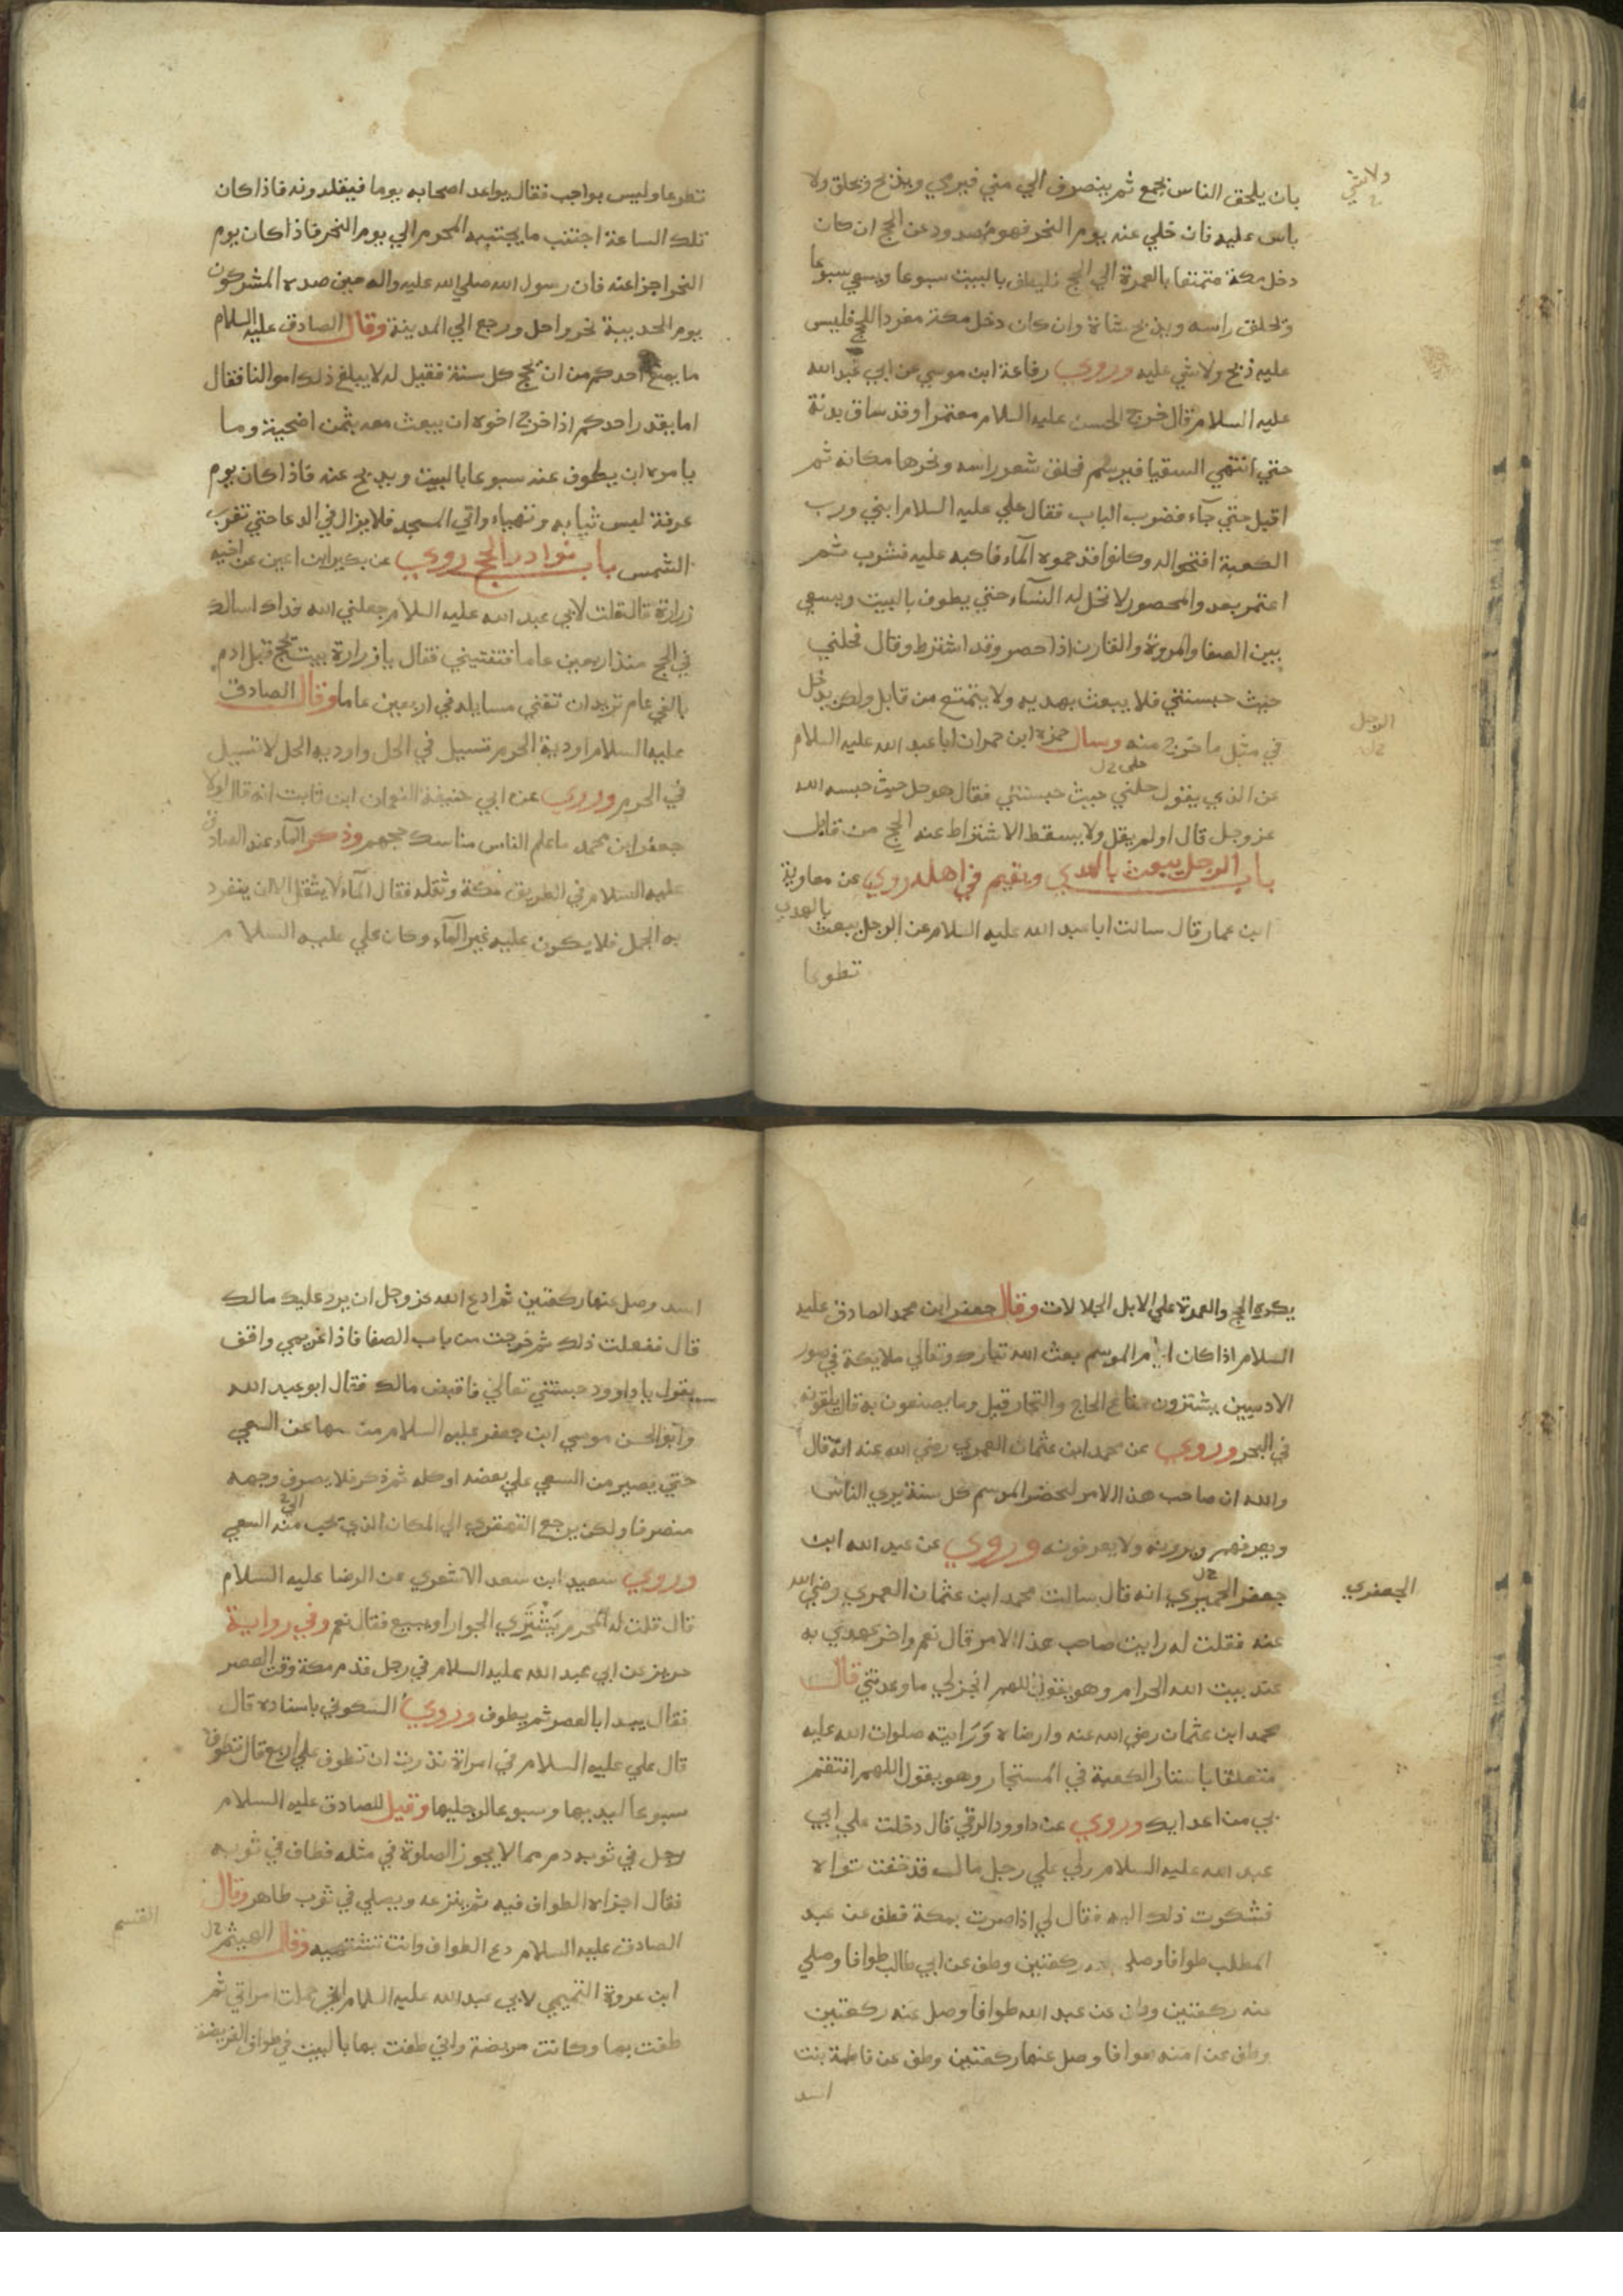 بان يلحق الناس بجمع ثم ينصرف الي مني فيرمي ويذبح ويحلق ولا
ولا شي
باس عليه فان خلي عنه يوم النحر فهو مصدود عن الحج ان كان
دخل مكة متمتعا بالعمرة الي الحج فليطف بالبيت سبوعا ويسعي سبوعا
ويحلق راسه ويذبح شاة وان كان دخل مكة مفردا للحج فليس
عليه ذبح ولا شي عليه وروي رفاعة ابن موسي عن ابي عبد الله
عليه السلام قال خرج الحسن عليه السلام معتمرا وقد ساق بدنة
حتي انتهي السقيا فبرسم فحلق شعر راسه ونحرها مكانه ثم
اقبل حتي جآء فضرب الباب فقال علي عليه السلام ابني ورب
الكعبة افتحوا له وكانوا قد حموه المآء فاكبه عليه فشرب ثم
اعتمر بعد والمحصور لا تحل له النسآء حتي يطوف بالبيت ويسعي
بين الصفا والمروة والقارن اذا احصر وقد اشترط وقال فحلني
حيث حبستني فلا يبعث بهديه ولا يتمتع من قابل ولكن يدخل
في مثل ما خرج منه وسال حمزه ابن حمران ابا عبد الله عليه السلام
الرجل
عن الذي يقول حلني حيث حبستني فقال هو حل حيث حبسه الله
عز وجل قال او لم يقل ولا يسقط الاشتراط عنه الحج من قابل
باب الرجل يبعث بالهدي ويقيم في اهله روي عن معاوية
ابن عمار قال سالت ابا عبد الله عليه السلام عن الرجل يبعث بالهدي
تطوعا
تطوعا وليس بواجب فقال يواعد اصحابه يوما فيقلدونه فاذا كان
تلك الساعة اجتنب ما يجتنبه المحرم الي يوم النحر فاذا كان يوم
النحر اجزا عنه فان رسول الله صلي الله عليه واله حين صده المشركون
يوم الحديبية نحر واحل ورجع الي المدينة وقال الصادق عليه السلام
ما يمنع احدكم من ان يحج كل سنة فقيل له لا يبلغ ذلك اموالنا فقال
اما يقدر احدكم اذا خرج اخوه ان يبعث معه بثمن اضحية وما
يامره ان يطوف عنه سبوعا بالبيت ويذبح عنه فاذا كان يوم
عرفة لبس ثيابه وتهياء واتي المسجد فلا يزال في الدعا حتي تغرب
الشمس باب نوادر الحج روي عن بكير ابن اعين عن اخيه
زرارة قال قلت لابي عبد الله عليه السلام جعلني الله فداك اسالك
في الحج منذ اربعين عاما فتفتيني فقال يا زرارة بيت يحج قبل ادم
بالفي عام تريد ان تفني مسايله في اربعين عاما وقال الصادق
عليه السلام اودية الحرم تسيل في الحل واوديه الحل لا تسيل
في الحرم وروي عن ابي حنيفة النعمان ابن ثابت انه قال لولا
جعفر ابن محمد ما علم الناس مناسك حجهم وذكر المآء عند الصادق
عليه السلام في الطريق مكة وثقله فقال المآء لا يثقل الا ان ينفرد
به الجمل فلا يكون عليه غير المآء وكان علي عليه السلام
يكره الحج والعمرة علي الابل الجلالات وقال جعفر ابن محمد الصادق عليه
السلام اذا كان ايام الموسم بعث الله تبارك وتعالي ملايكة في صور
الادميين يشترون متاع الحاج والتجار قيل وما يصنعون به قال يلقونه
في البحر وروي عن محمد ابن عثمان العمري رضي الله عنه انه قال
والله ان صاحب هذا الامر ليحضر الموسم كل سنة يري الناس
ويعرفهم ويرونه ولا يعرفونه وروي عن عبد الله ابن
جعفر الحميري انه قال سالت محمد ابن عثمان العمري رضي الله
الجعفري
عنه فقلت له رايت صاحب هذا الامر قال نعم واخر عهدي به
عند بيت الله الحرام وهو يقول اللهم انجز لي ما وعدتني قال
محمد ابن عثمان رضي الله عنه وارضاه ورايته صلوات الله عليه
متعلقا باستار الكعبة في المستجار وهو يقول اللهم انتقم
بي من اعدايك وروي عن داوود الرقي قال دخلت علي ابي
عبد الله عليه السلام ولي علي رجل مال قد خفت تواه
فشكوت ذلك اليه فقال لي اذا صرت بمكة فطف عن عبد
المطلب طوافا وصلي عنه ركعتين وطف عن ابي طالب طوافا وصلي
عنه ركعتين وطف عن عبد الله طوافا وصل عنه ركعتين
وطف عن امنه طوافا وصل عنها ركعتين وطف عن فاطمة بنت
اسد
اسد وصل عنها ركعتين ثم ادع الله عز وجل ان يرد عليك مالك
قال ففعلت ذلك ثم خرجت من باب الصفا فاذا غريمي واقف
يقول يا داوود حبستني تعالي فاقبض مالك فقال ابو عبد الله
وابو الحسن موسي ابن جعفر عليه السلام من سها عن السعي
حتي يصير من السعي علي بعضه او كله ثم ذكر فلا يصرف وجهه
منصرفا ولكن يرجع القهقري الي المكان الذي يجب منه السعي
وروي سعيد ابن سعد الاشعري عن الرضا عليه السلام
قال قلت له المحرم يشتري الجوار او يبيع فقال نعم وفي رواية
حريز عن ابي عبد الله عليه السلام في رجل قدم مكة وقت العصر
فقال يبدا بالعصر ثم يطوف وروي السكوني باسناده قال
قال علي عليه السلام في امراة نذرت ان تطوف علي اربع قال تطوف
سبوعا ليديها وسبوعا لرجليها وقيل للصادق عليه السلام
رجل في ثوبه دم مما لا يجوز الصلوة في مثله فطاف في ثوبه
فقال اجزاه الطواف فيه ثم ينزعه ويصلي في ثوب طاهر وقال
الصادق عليه السلام دع الطواف وانت تشتهيه وقال الهيثم
القسم
ابن عروة التميمي لابي عبد الله عليه السلام اني حملت امراتي ثم
طفت بها وكانت مريضة واني طفت بها بالبيت في طواف الفريضة